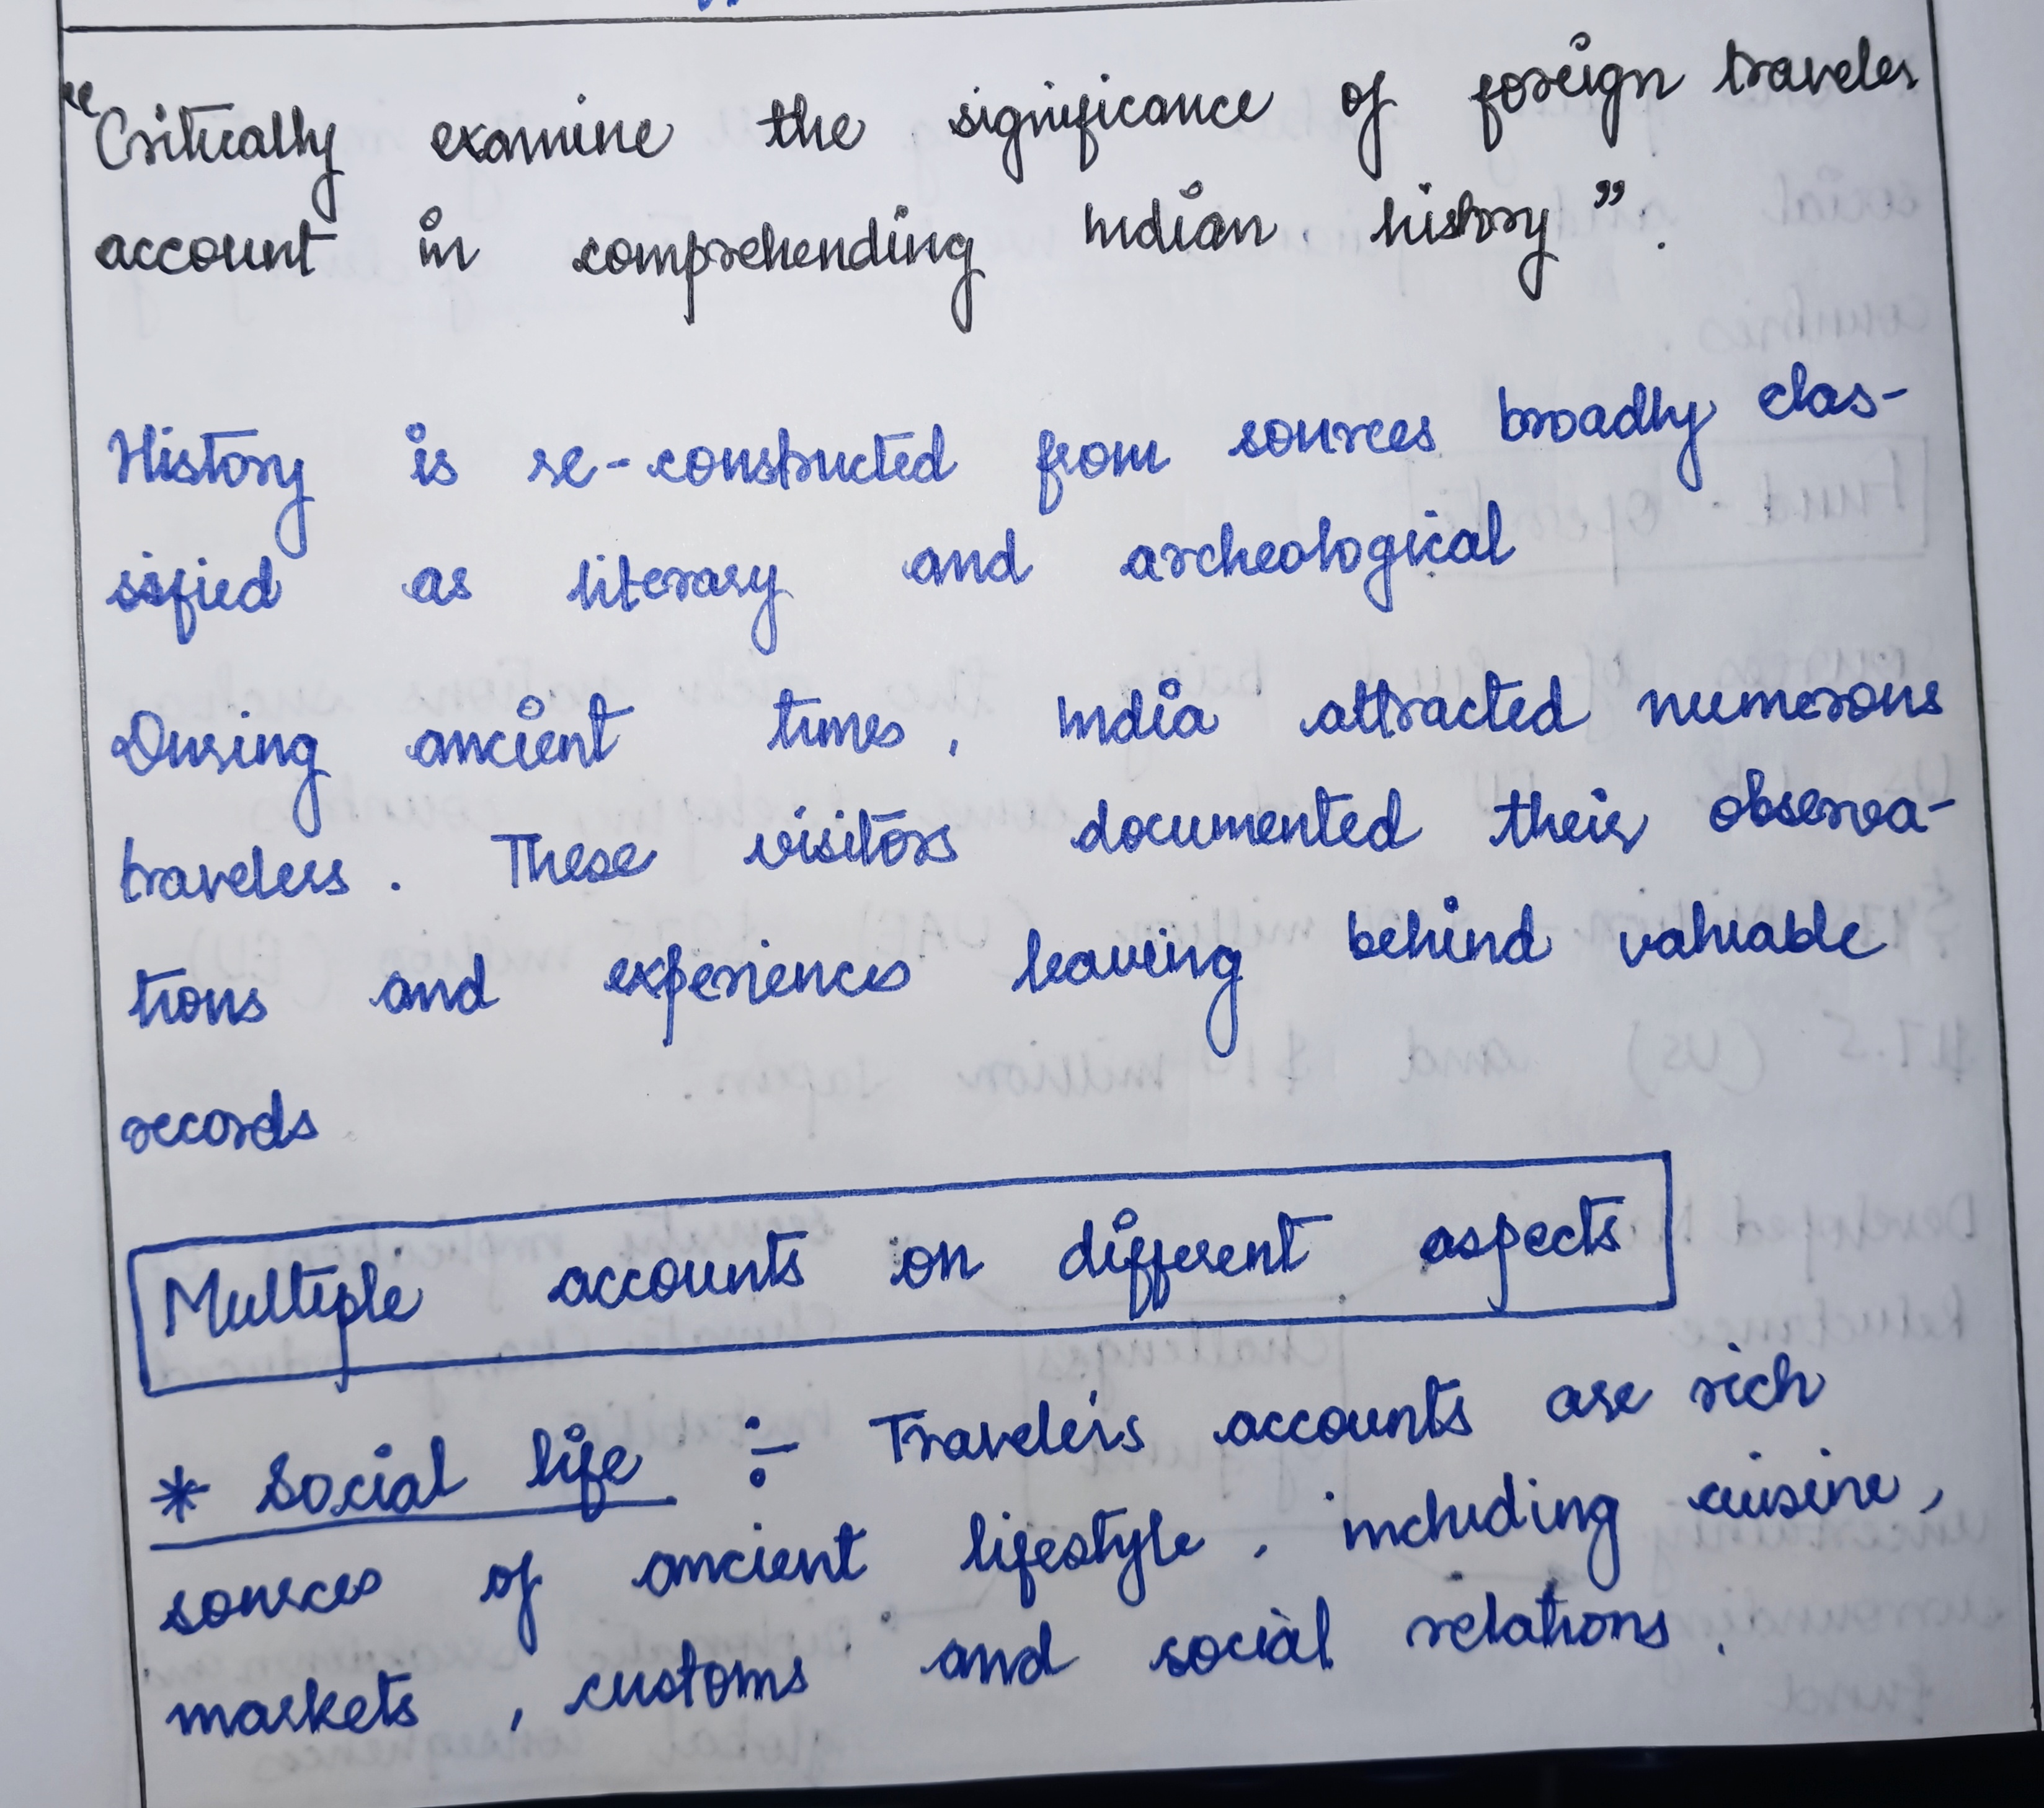 "Critically examine the significance of foreign traveler
account in comprehending Indian history".
History is re-constructed from sources broadly clas-
sified as literary and archeological
During ancient times, India attracted numerous
travelers. These visitors documented their observa-
tions and experiences leaving behind valuable
records
Multiple accounts on different aspects
* Social life ÷ Traveler's accounts are rich
sources of ancient lifestyle, including cuisine,
markets, customs and social relations.